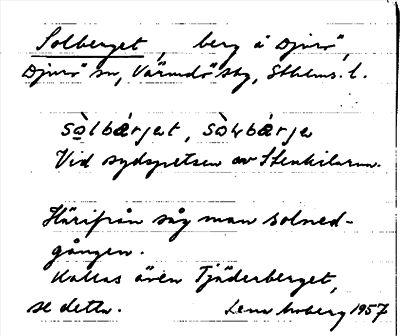 Solberget, berg å Djurö,
Djurö sn, Värmdö skg, Sthlms. l.
sòlbærjət, sòlbærjə
Vid sydspetsen av Stenkilarna.
Härifrån såg man solned-
gången.
Kallas även Tjäderberget,
se detta. Lena Moberg 1957